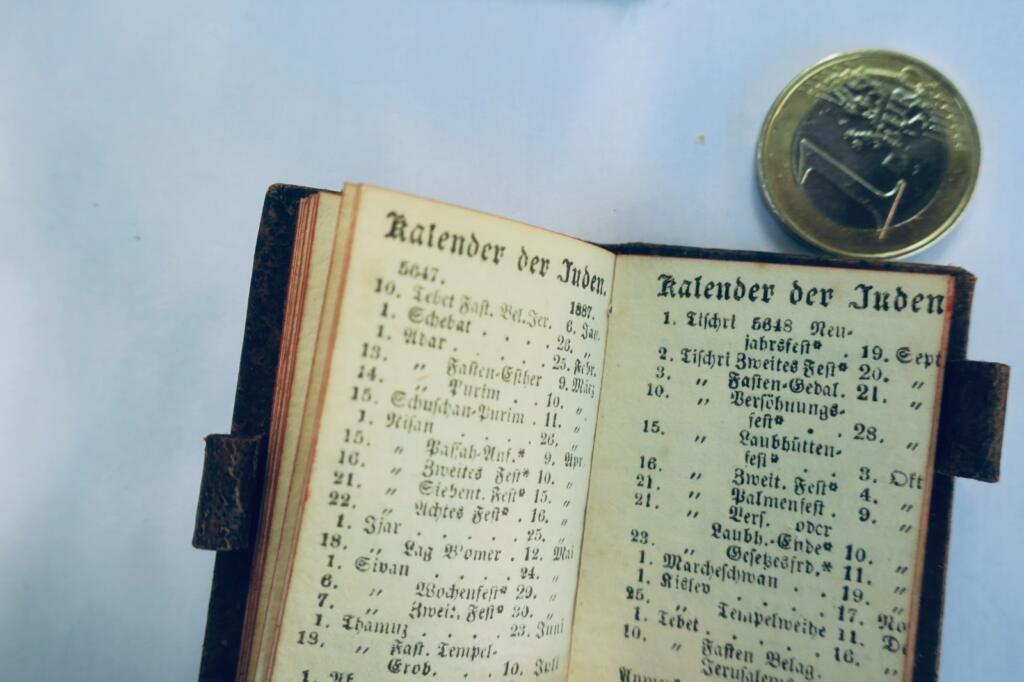 Kalender der Juden.
5647. 1887.
10. Tebet Fast. Bel. Jer. 6. Jan.
1. Schebat . . . 26. „
1. Adar . . . . 25. Febr.
13. „ Fasten-Esther 9. März
14. „ Purim . . 10. „
15. Schuschan-Purim . 11. „
1. Nisan . . . . 26. „
15. „ Passah-Anf.* 9. Apr.
16. „ Zweites Fest* 10. „
21. „ Siebent. Fest* 15. „
22. „ Achtes Fest* . 16. „
1. Ijar . . . . . 25. „
18. „ Lag B'omer . 12. Mai
1. Sivan . . . . 24. „
6. „ Wochenfest* 29. „
7. „ Zweit. Fest* 30. „
1. Thamuz . . . . 23. Juni
19. „ Fast. Tempel-
Erob. . . 10. Juli
1.
Kalender der Juden
1. Tischri 5648 Neu-
jahrsfest* . 19. Sept
2. Tischri Zweites Fest* 20. „
3. „ Fasten-Gedal. 21. „
10. „ Versöhnungs-
fest* . . 28. „
15. „ Laubhütten-
fest* . . 3. Okt
16. „ Zweit. Fest* 4. „
21. „ Palmenfest . 9. „
21. „ Vers. oder
Laubh.-Ende* 10. „
23. „ Gesetzesfrd.* 11. „
1. Marcheschwan . 19. „
1. Kislev . . . 17. No
25. „ Tempelweihe 11. De
1. Tebet . . . . 16. „
10. „ Fasten Belag.
1